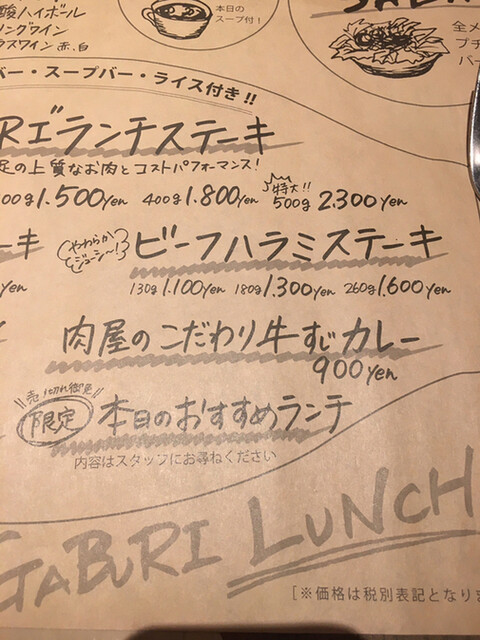 酸ハイボール
リングワイン
ラスワイン 赤、白
本日の
スープ付!
全メ
プチ
バー
バー・スープバー・ライス付き!!
ランチステーキ
足の上質なお肉とコストパフォーマンス!
300g 1.500yen 400g 1.800yen 特大!! 500g 2.300yen
ーキ やわらか ジューシ〜! ビーフハラミステーキ
yen 130g 1.100yen 180g 1.300yen 260g 1.600yen
肉屋のこだわり牛すじカレー
900yen
!!売り切れ御免!!
限定 本日のおすすめランチ
内容はスタッフにお尋ねください
GABURI LUNCH
[※価格は税別表記となりま